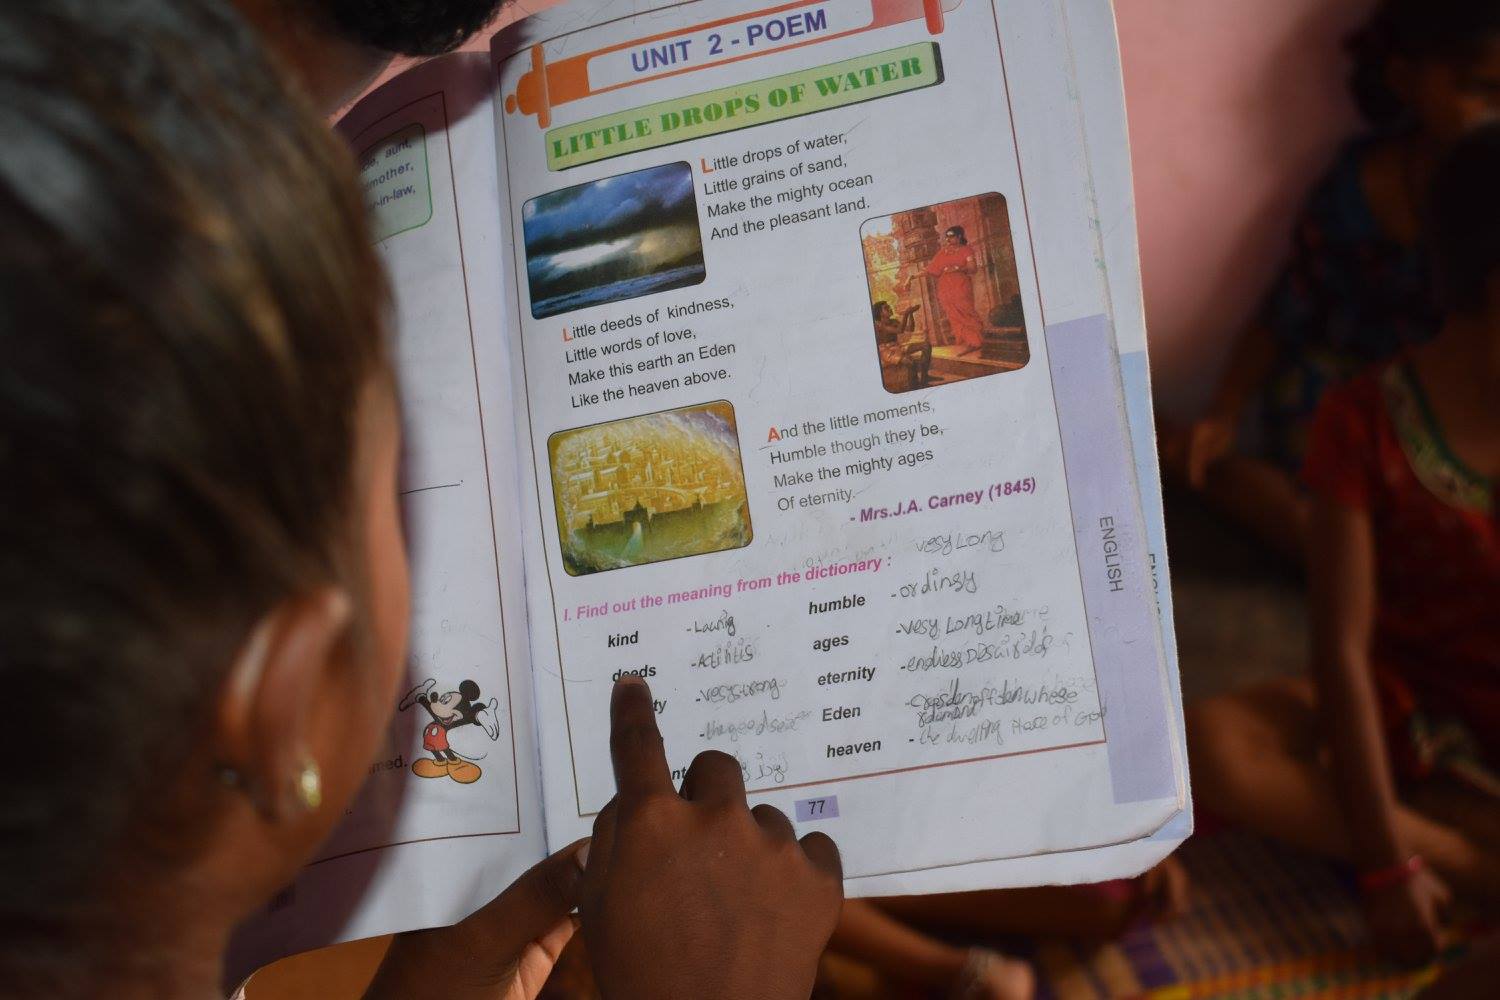 UNIT 2 - POEM
LITTLE DROPS OF WATER
Little drops of water,
Little grains of sand,
Make the mighty ocean
And the pleasant land.
Little deeds of kindness,
Little words of love,
Make this earth an Eden
Like the heaven above.
And the little moments,
Humble though they be,
Make the mighty ages
Of eternity.
- Mrs.J.A. Carney (1845)
very Long
I. Find out the meaning from the dictionary :
kind
deeds
humble
ages - very Long time
eternity - endless
Eden
heaven - the dwelling Place of God
77
ENGLISH
aunt,
mother,
-in-law,